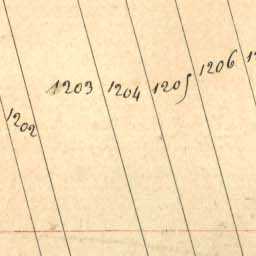 1202
1203
1204
1205
1206